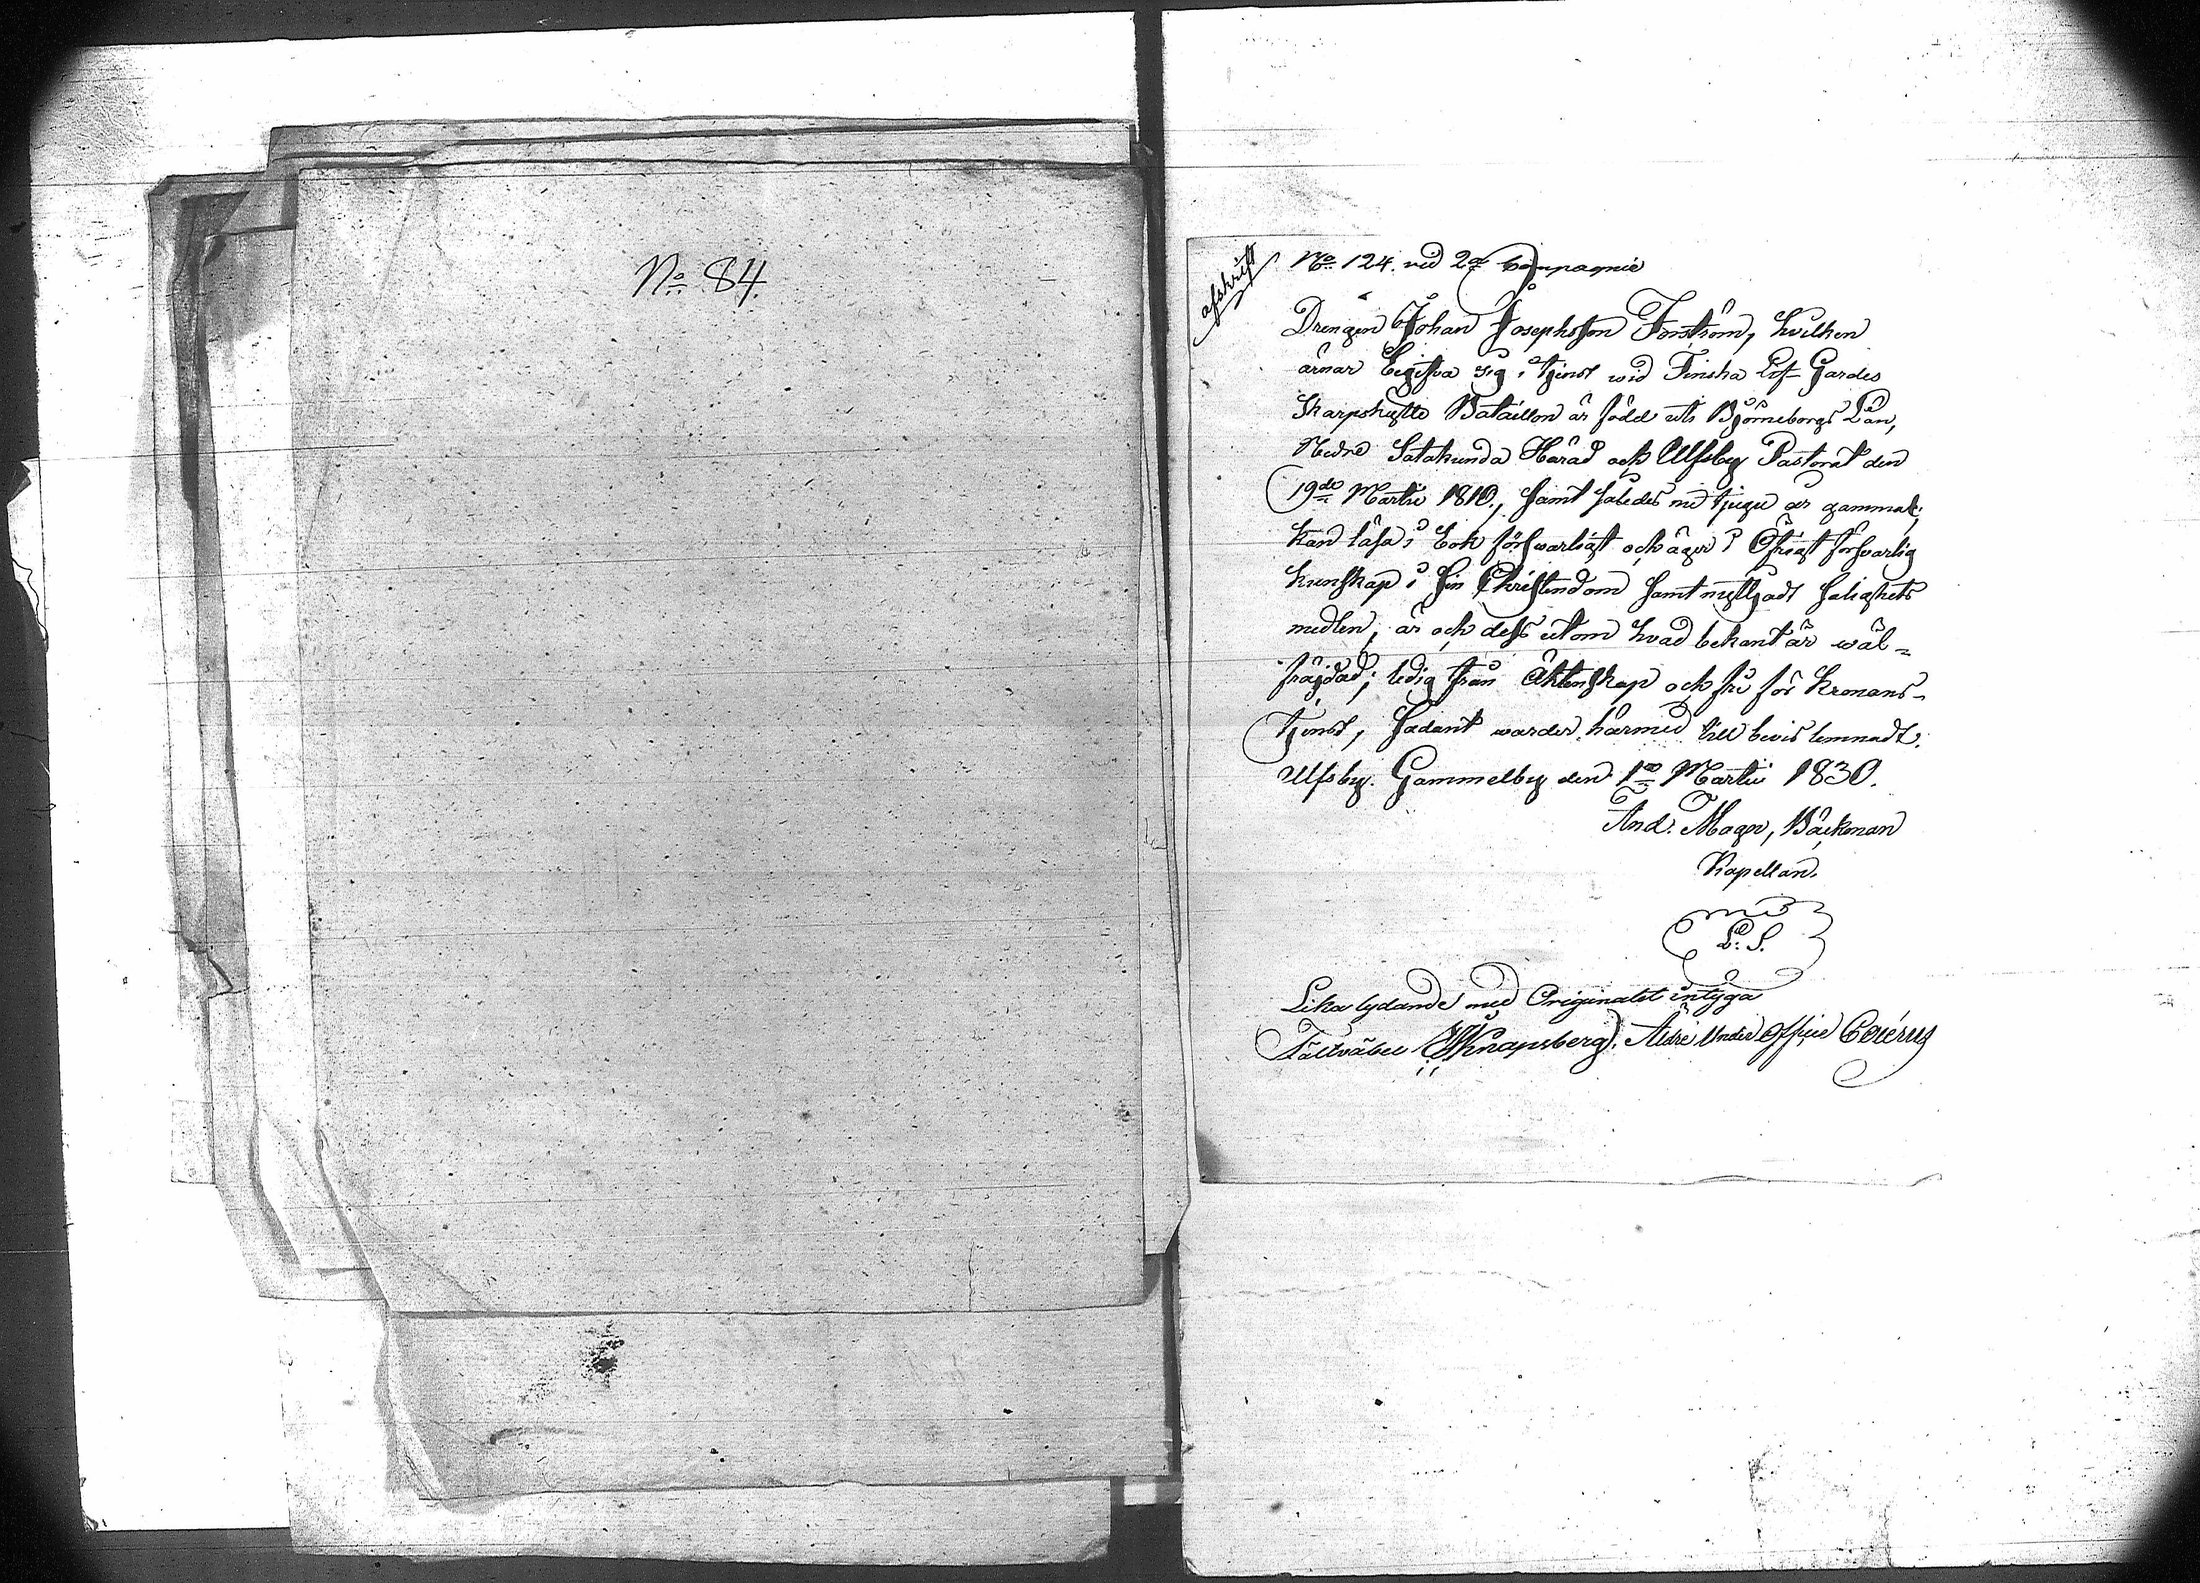 No 84.
afskrift
No 124. vid 2a Compagnie
Drengen Johan Josephsson Forström, hvilken
ärnar begifva sig i tjenst wid Finska Lif Gardes
Skarpskytte Bataillon är född uti Björneborgs Län,
Nedre Satakunda Härad och Ulfsby Pastorat den
19de Martii 1810, samt således nu tjugu år gammal;
kan läsa i bok försvarligt och äger i Öfrigt försvarlig
kunskap i sin Christendom samt nyttjadt salighets
medlen, är och dess utom hvad bekant är wäl-
fräjdad; ledig från Äktenskap och fri för Kronans-
tjenst, sådant warder härmed till bevis lemnadt.
Ulfsby Gammelby den 1a Martii 1830.
And. Magn, Bäckman
Kapellan.
L. S.
Lika lydande med Originalet intyga
Fältväbel Knapsberg. Äldre Under Officer